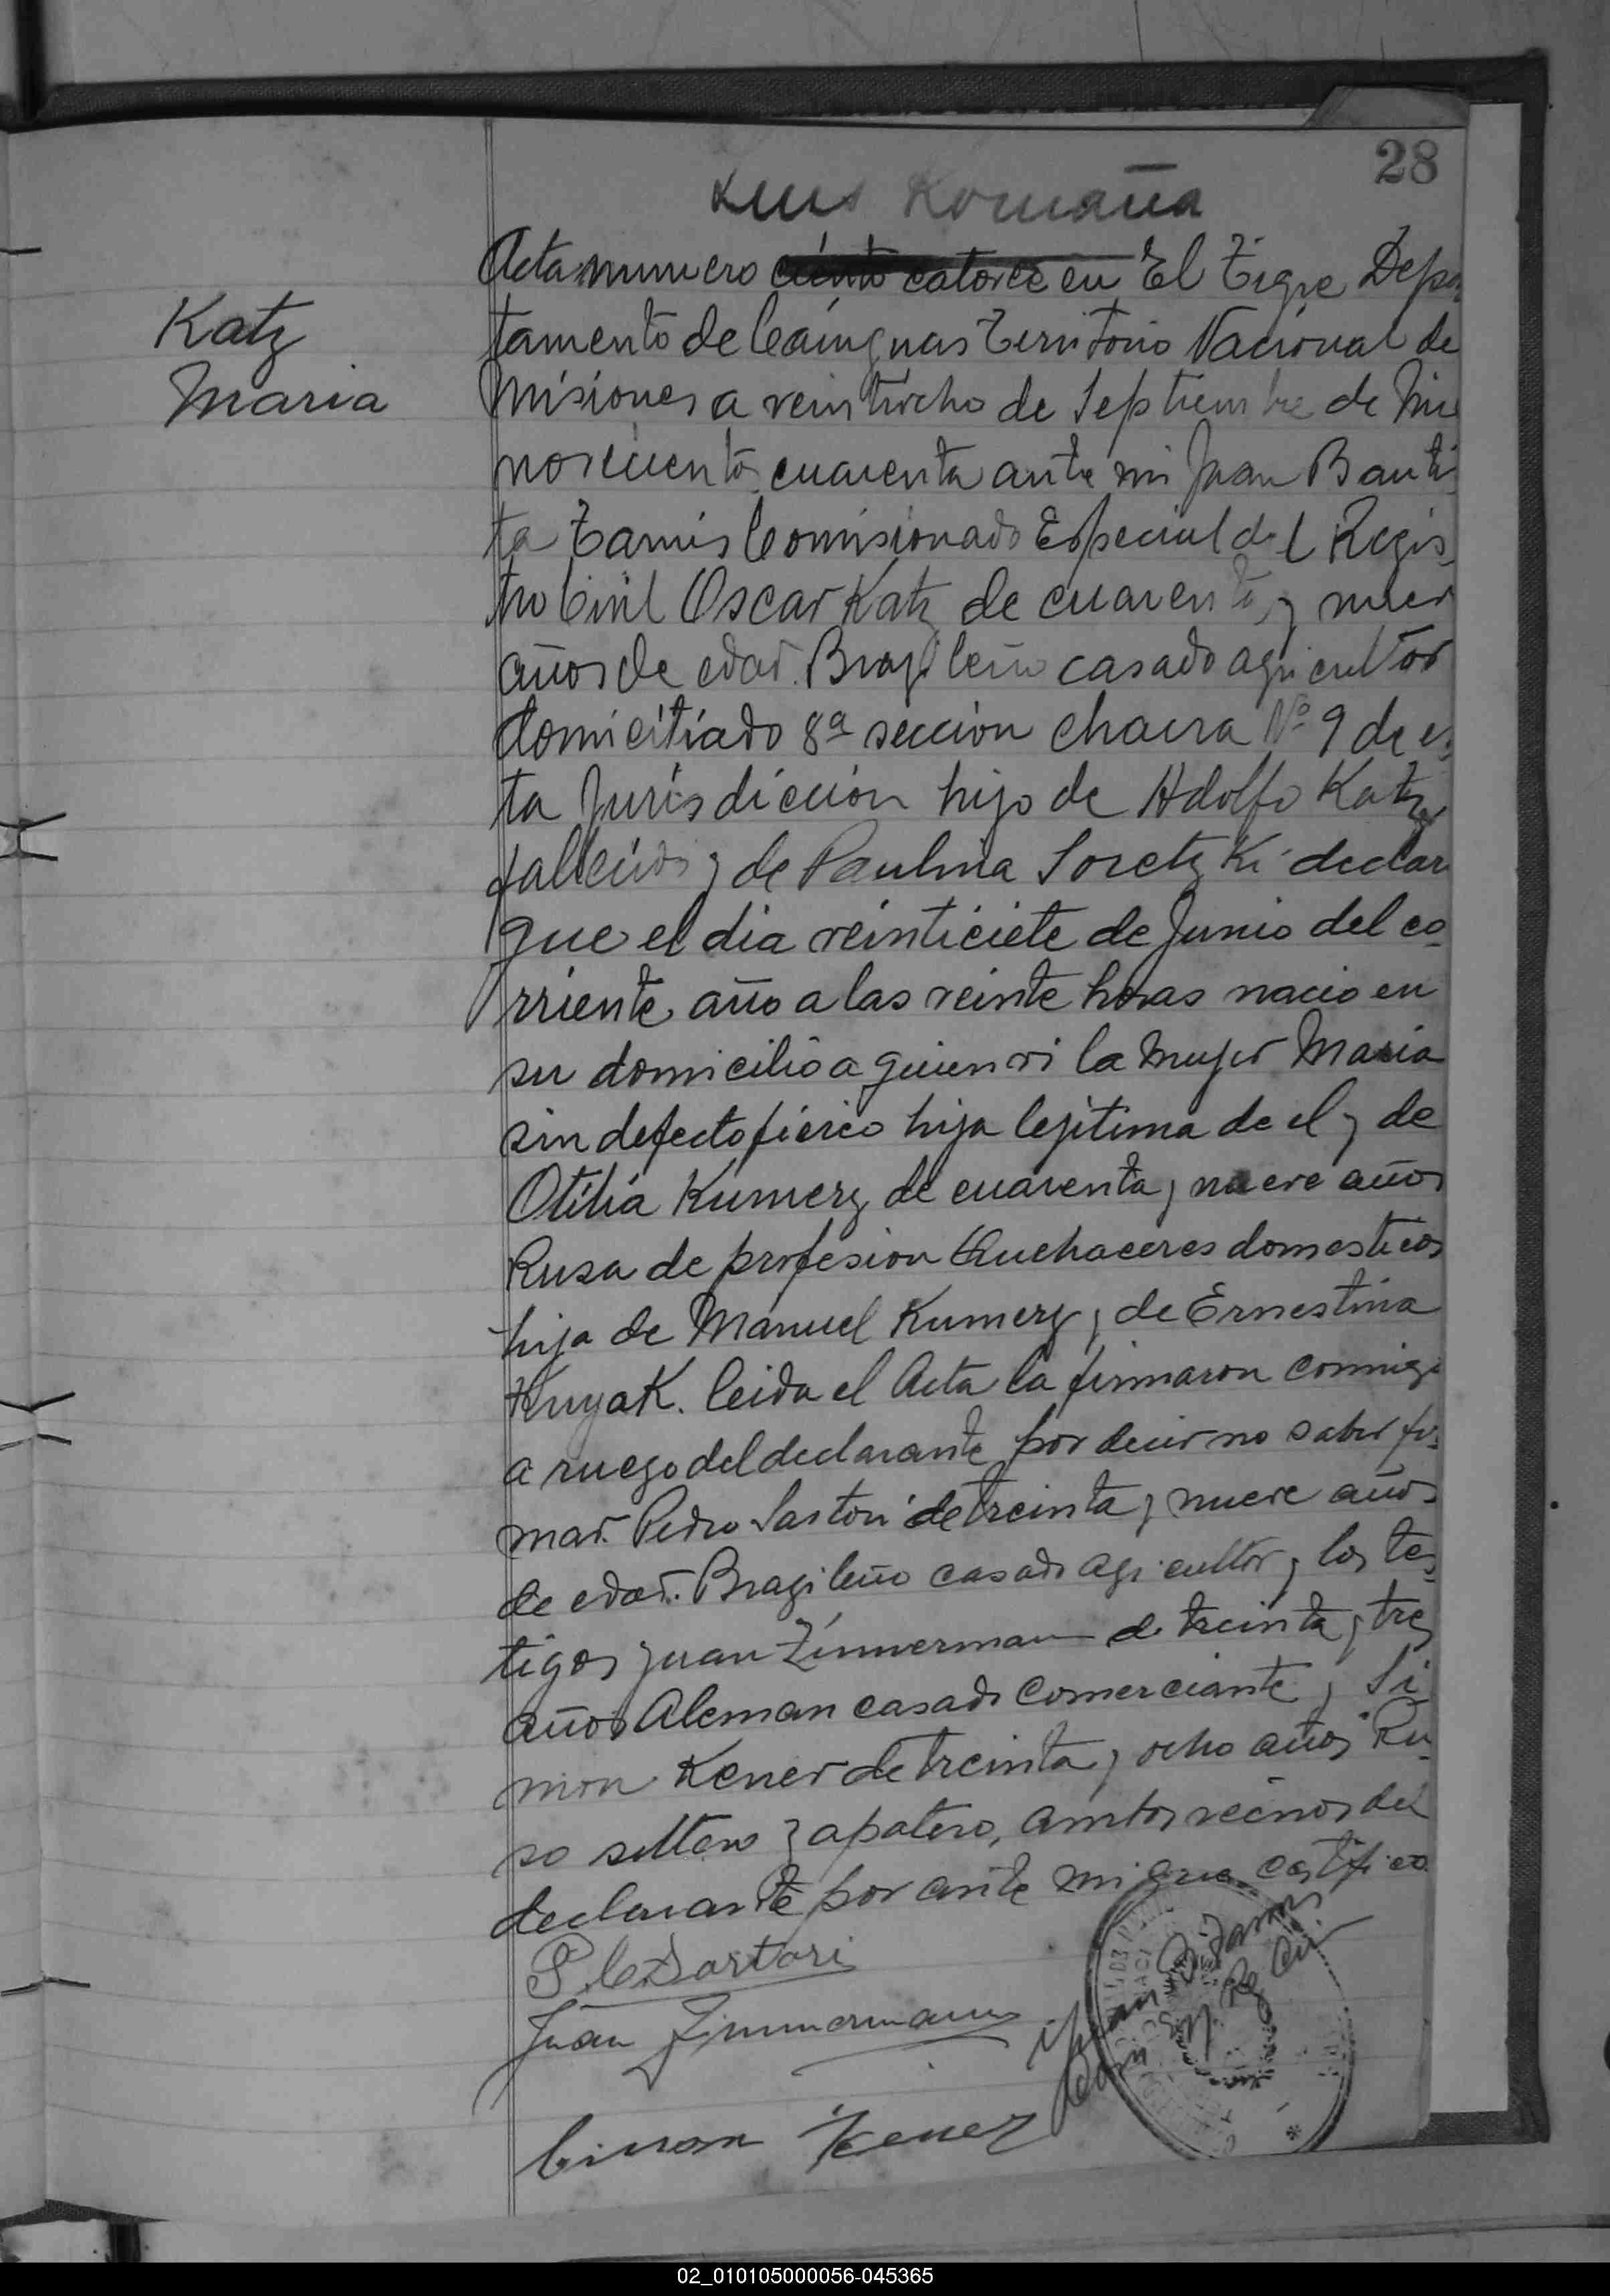 28
Luis Romaña
Acta numero ciento catorce en El Tigre Depar
Katz
Maria
tamento de Cainguas Territorio Nacional de
Misiones a veintiocho de Septiembre de Mil
novecientos cuarenta ante mi Juan Bautis
ta Tamis Comisionado Especial del Regis
tro Civil Oscar Katz de cuarenta y nueve
años de edad. Brazileño casado agricultor
domicitiado 8ª seccion chacra Nº 9 de es
ta Jurisdiccion hijo de Adolfo Katz
fallecido y de Paulina Soretzki declara
que el dia veinticiete de Junio del co-
rriente año a las veinte horas nacio en
su domicilio a quien vi la mujer Maria
sin defecto ficico hija lejitima de el y de
Otilia Kumerz de cuarenta y nueve años
Rusa de profesion Quehaceres domesticos
hija de Manuel Kumerz y de Ernestina
Kuyak. leida el Acta la firmaron conmigo
a ruego del declarante por decir no saber fir-
mar. Pedro Sartori de treinta y nueve años
de edad. Brazileño casado agricultor y los tes-
tigos Juan Zimmerman de treinta y tres
años Aleman casado comerciante y Si
mon Kener de treinta y ocho años Ru-
so soltero zapatero, ambos vecinos del
declarante por ante mi que certifico
P. C. Sartori
Juan Zimmermann
Juan B. Tamis
Com. Esp. Reg. Civ.
Cimon Kener
02_010105000056-045365